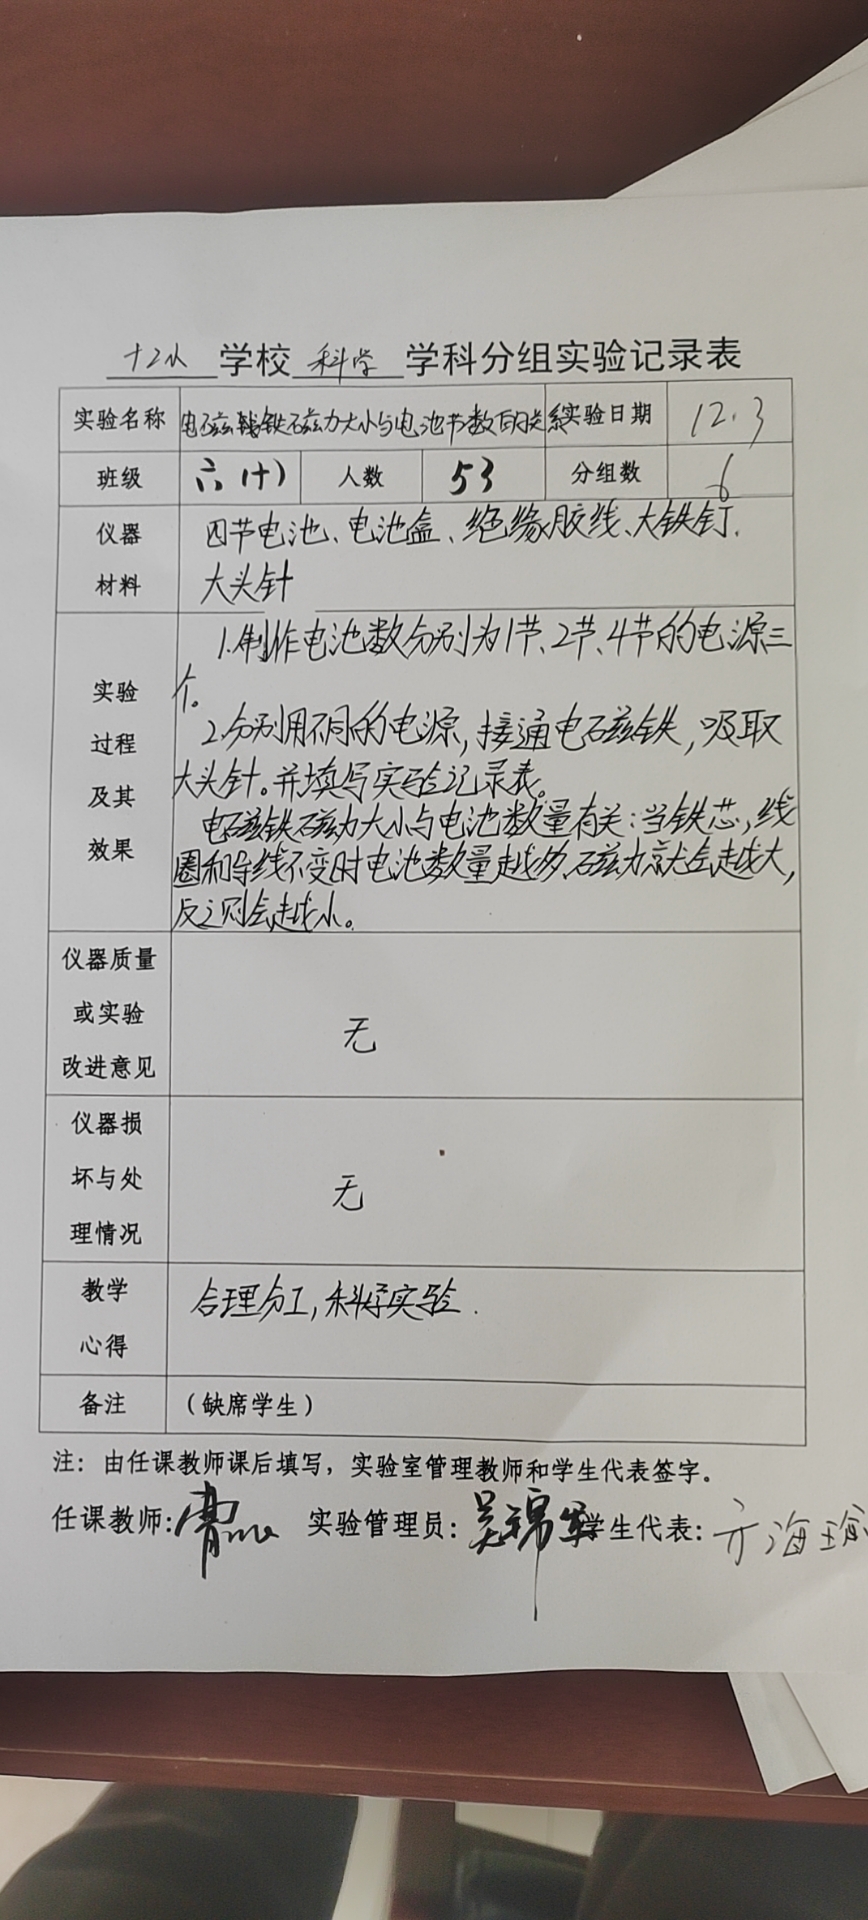 十2小 学校 科学 学科分组实验记录表
实验名称 电磁铁磁力大小与电池节数的关系 实验日期 12.3
班级 六(十) 人数 53 分组数 6
仪器材料 四节电池、电池盒、绝缘胶线、大铁钉、
大头针
实验过程及其效果
1.制作电池数分别为1节、2节、4节的电源三
个。
2.分别用不同的电源,接通电磁铁,吸取
大头针。并填写实验记录表。
电磁铁磁力大小与电池数量有关:当铁芯,线
圈和导线不变时电池数量越多,磁力就会越大,
反之则会越小。
仪器质量或实验改进意见 无
仪器损坏与处理情况 无
教学心得 合理分工,科学实验.
备注 (缺席学生)
注:由任课教师课后填写,实验室管理教师和学生代表签字。
任课教师: 实验管理员:吴锦 学生代表: 海瑜